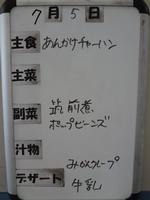 7月5日
主食 あんかけチャーハン
主菜
副菜 筑前煮
ポップビーンズ
汁物
みかんクレープ
デザート 牛乳